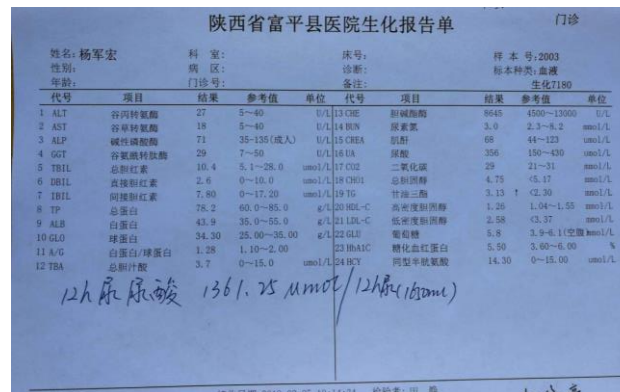 陕西省富平县医院生化报告单
门诊
姓名:杨军宏 科 室: 床号: 样 本 号:2003
性别: 病 区: 诊断: 标本种类:血液
年龄: 门诊号: 备注: 生化7180
代号 项目 结果 参考值 单位 代号 项目 结果 参考值 单位
1 ALT 谷丙转氨酶 27 5~40 U/L 13 CHE 胆碱酯酶 8645 4500~13000 U/L
2 AST 谷草转氨酶 18 5~40 U/L 14 BUN 尿素氮 3.0 2.3~8.2 mmol/L
3 ALP 碱性磷酸酶 71 35-135(成人) U/L 15 CREA 肌酐 68 44~123 umol/L
4 GGT 谷氨酰转肽酶 29 7~50 U/L 16 UA 尿酸 356 150~430 umol/L
5 TBIL 总胆红素 10.4 5.1~28.0 umol/L 17 CO2 二氧化碳 29 21~31 mmol/L
6 DBIL 直接胆红素 2.6 0~10.0 umol/L 18 CHO1 总胆固醇 4.75 <5.17 mmol/L
7 IBIL 间接胆红素 7.80 0~17.20 umol/L 19 TG 甘油三酯 3.13 ↑ <2.30 mmol/L
8 TP 总蛋白 78.2 60.0~85.0 g/L 20 HDL-C 高密度胆固醇 1.26 1.04~1.55 mmol/L
9 ALB 白蛋白 43.9 35.0~55.0 g/L 21 LDL-C 低密度胆固醇 2.58 <3.37 mmol/L
10 GLO 球蛋白 34.30 25.00~35.00 g/L 22 GLU 葡萄糖 5.8 3.9-6.1(空腹 mmol/L
11 A/G 白蛋白/球蛋白 1.28 1.10~2.00 23 HbA1C 糖化血红蛋白 5.50 3.60~6.00 %
12 TBA 总胆汁酸 3.7 0~15.0 umol/L 24 HCY 同型半胱氨酸 14.30 0~15.00 umol/L
12h尿尿酸 1361.25 μmol/12h尿(1650ml)